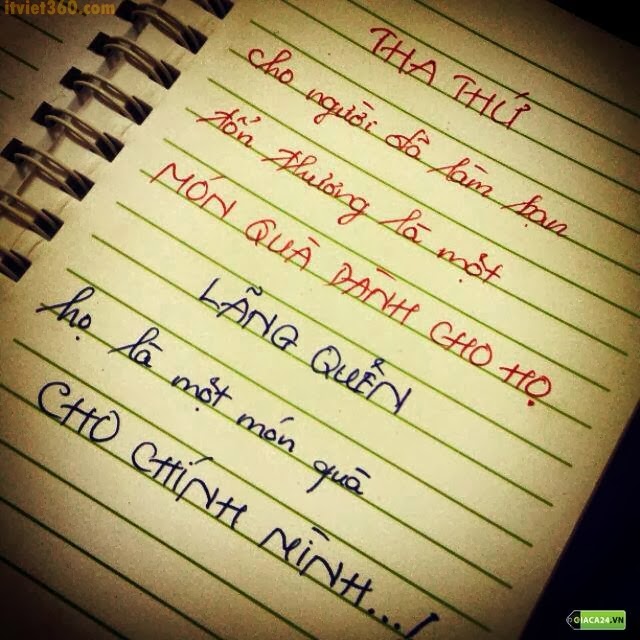 itviet360.com
THA THỨ
cho người đã làm bạn
tổn thương là một
MÓN QUÀ DÀNH CHO HỌ
LÃNG QUÊN
họ là một món quà
CHO CHÍNH MÌNH...!
GIACA24.VN